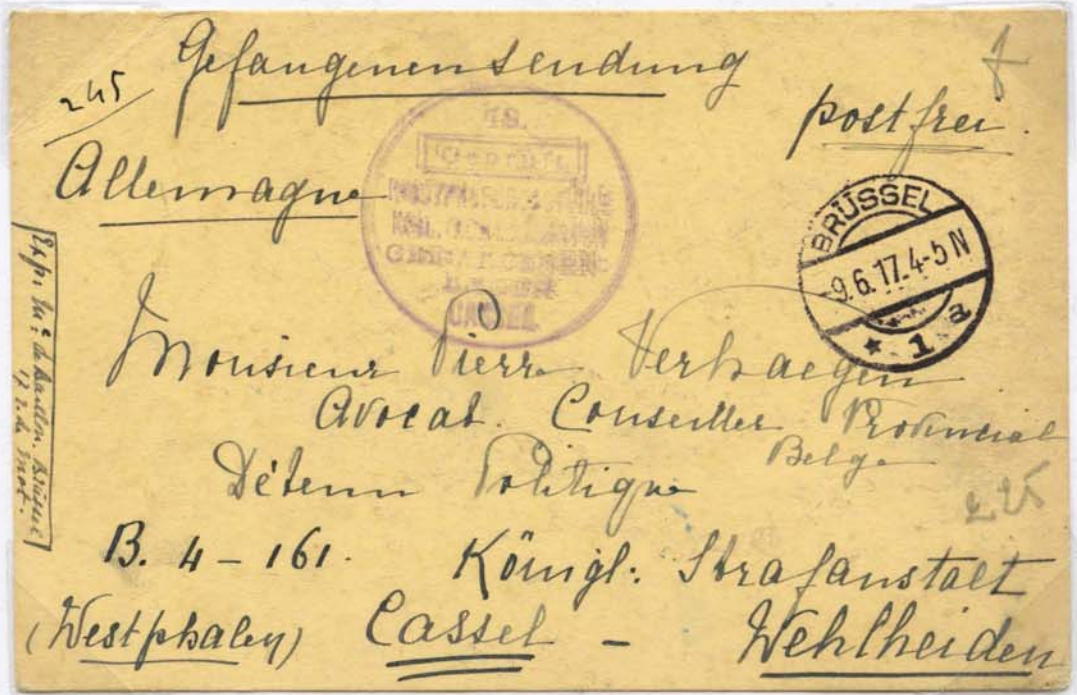 Gefangenensendung
postfrei.
245
Allemagne
18.
Geprüft
CASSEL
BRÜSSEL
9.6.17.4-5 N
* 1 a
Monsieur Pierre Verhaegen
Avocat. Conseiller Provincial
Belge
Détenu Politique
B. 4 - 161. Königl: Strafanstalt
(Westphalen) Cassel - Wehlheiden